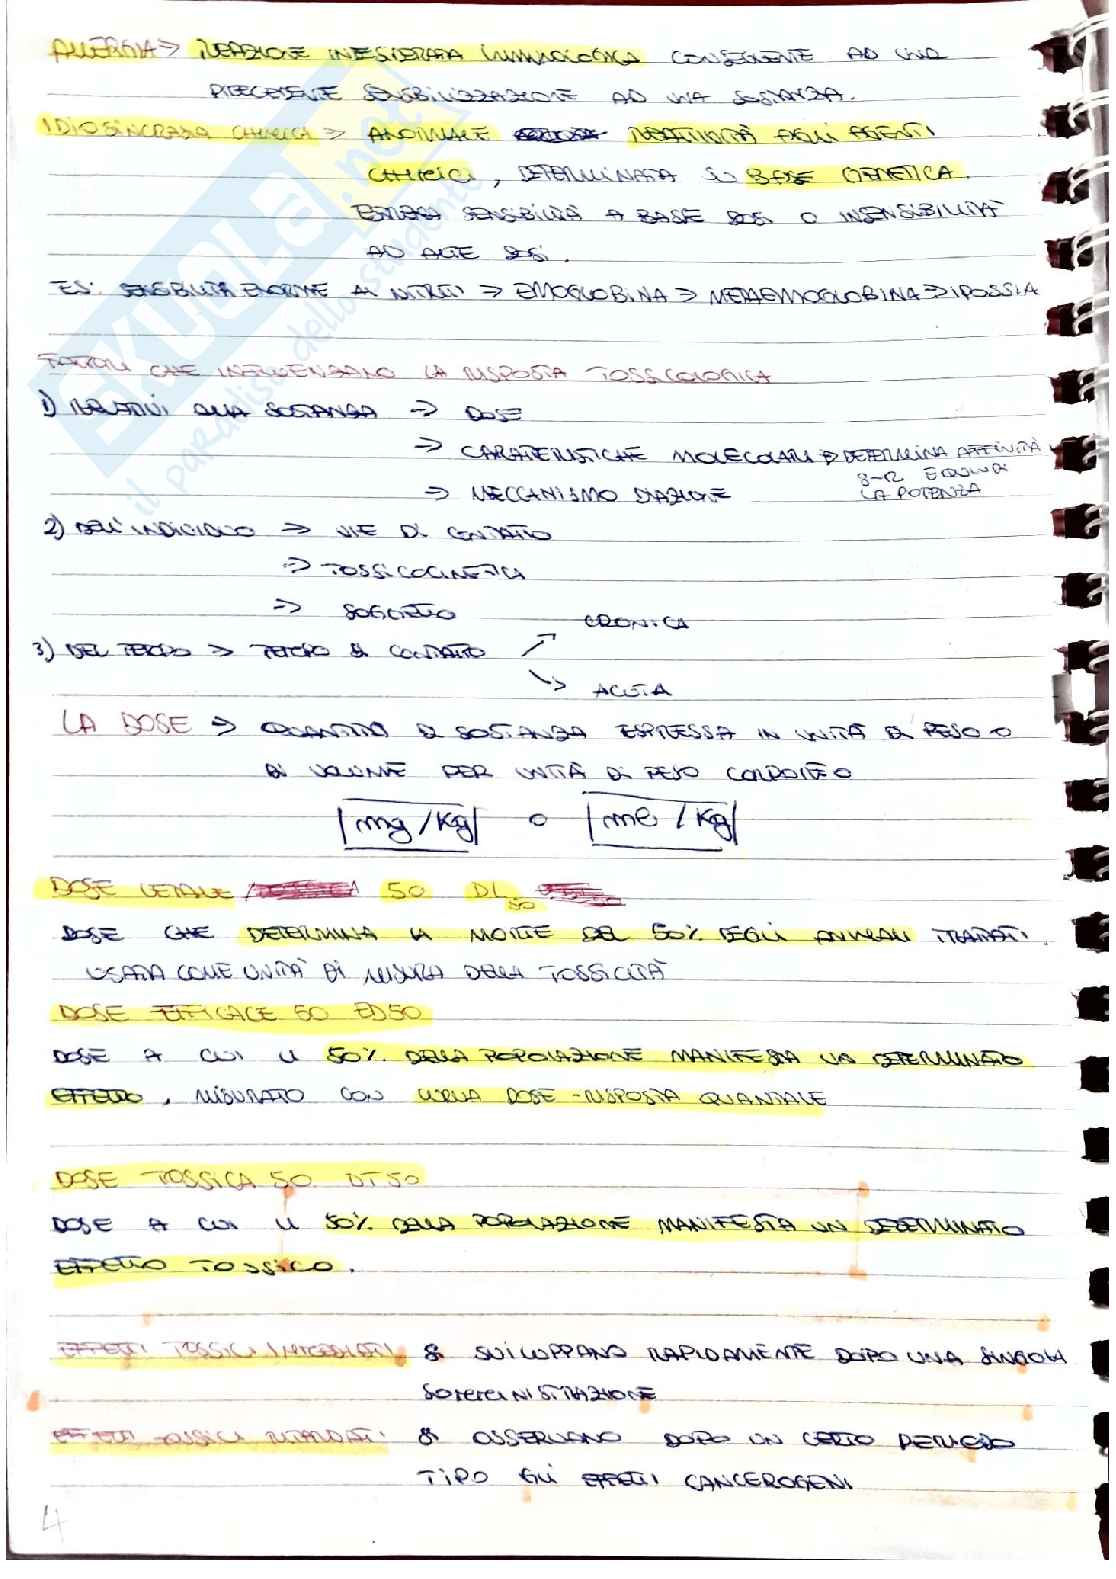 ALLERGIA → REAZIONE INDESIDERATA IMMUNOLOGICA CONSEGUENTE AD UNA
PRECEDENTE SENSIBILIZZAZIONE AD UNA SOSTANZA.
IDIOSINCRASIA CHIMICA → ANORMALE REATTIVITÀ AGLI AGENTI
CHIMICI, DETERMINATA SU BASE GENETICA.
ESTREMA SENSIBILITÀ A BASSE DOSI O INSENSIBILITÀ
AD ALTE DOSI.
ES: SENSIBILITÀ ENORME AI NITRITI → EMOGLOBINA → METAEMOGLOBINA → IPOSSIA
FATTORI CHE INFLUENZANO LA RISPOSTA TOSSICOLOGICA
1) RELATIVI ALLA SOSTANZA → DOSE
→ CARATTERISTICHE MOLECOLARI → DETERMINA AFFINITÀ
LA POTENZA
→ MECCANISMO D'AZIONE
2) DELL'INDIVIDUO → VIE DI CONTATTO
→ TOSSICOCINETICA
→ SOGGETTO
CRONICA
3) DEL TEMPO → TEMPO DI CONTATTO
ACUTA
LA DOSE → QUANTITÀ DI SOSTANZA ESPRESSA IN UNITÀ DI PESO O
DI VOLUME PER UNITÀ DI PESO CORPOREO
mg/Kg o ml/Kg
DOSE LETALE 50 DL50
DOSE CHE DETERMINA LA MORTE DEL 50% DEGLI ANIMALI TRATTATI.
USATA COME UNITÀ DI MISURA DELLA TOSSICITÀ
DOSE EFFICACE 50 ED50
DOSE A CUI IL 50% DELLA POPOLAZIONE MANIFESTA UN DETERMINATO
EFFETTO, MISURATO CON CURVA DOSE-RISPOSTA QUANTALE
DOSE TOSSICA 50 DT50
DOSE A CUI IL 50% DELLA POPOLAZIONE MANIFESTA UN DETERMINATO
EFFETTO TOSSICO.
EFFETTI TOSSICI IMMEDIATI SI SVILUPPANO RAPIDAMENTE DOPO UNA SINGOLA
SOMMINISTRAZIONE
EFFETTI TOSSICI RITARDATI SI OSSERVANO DOPO UN CERTO PERIODO
TIPO GLI EFFETTI CANCEROGENI
4
SKUOLA.net
il paradiso dello studente